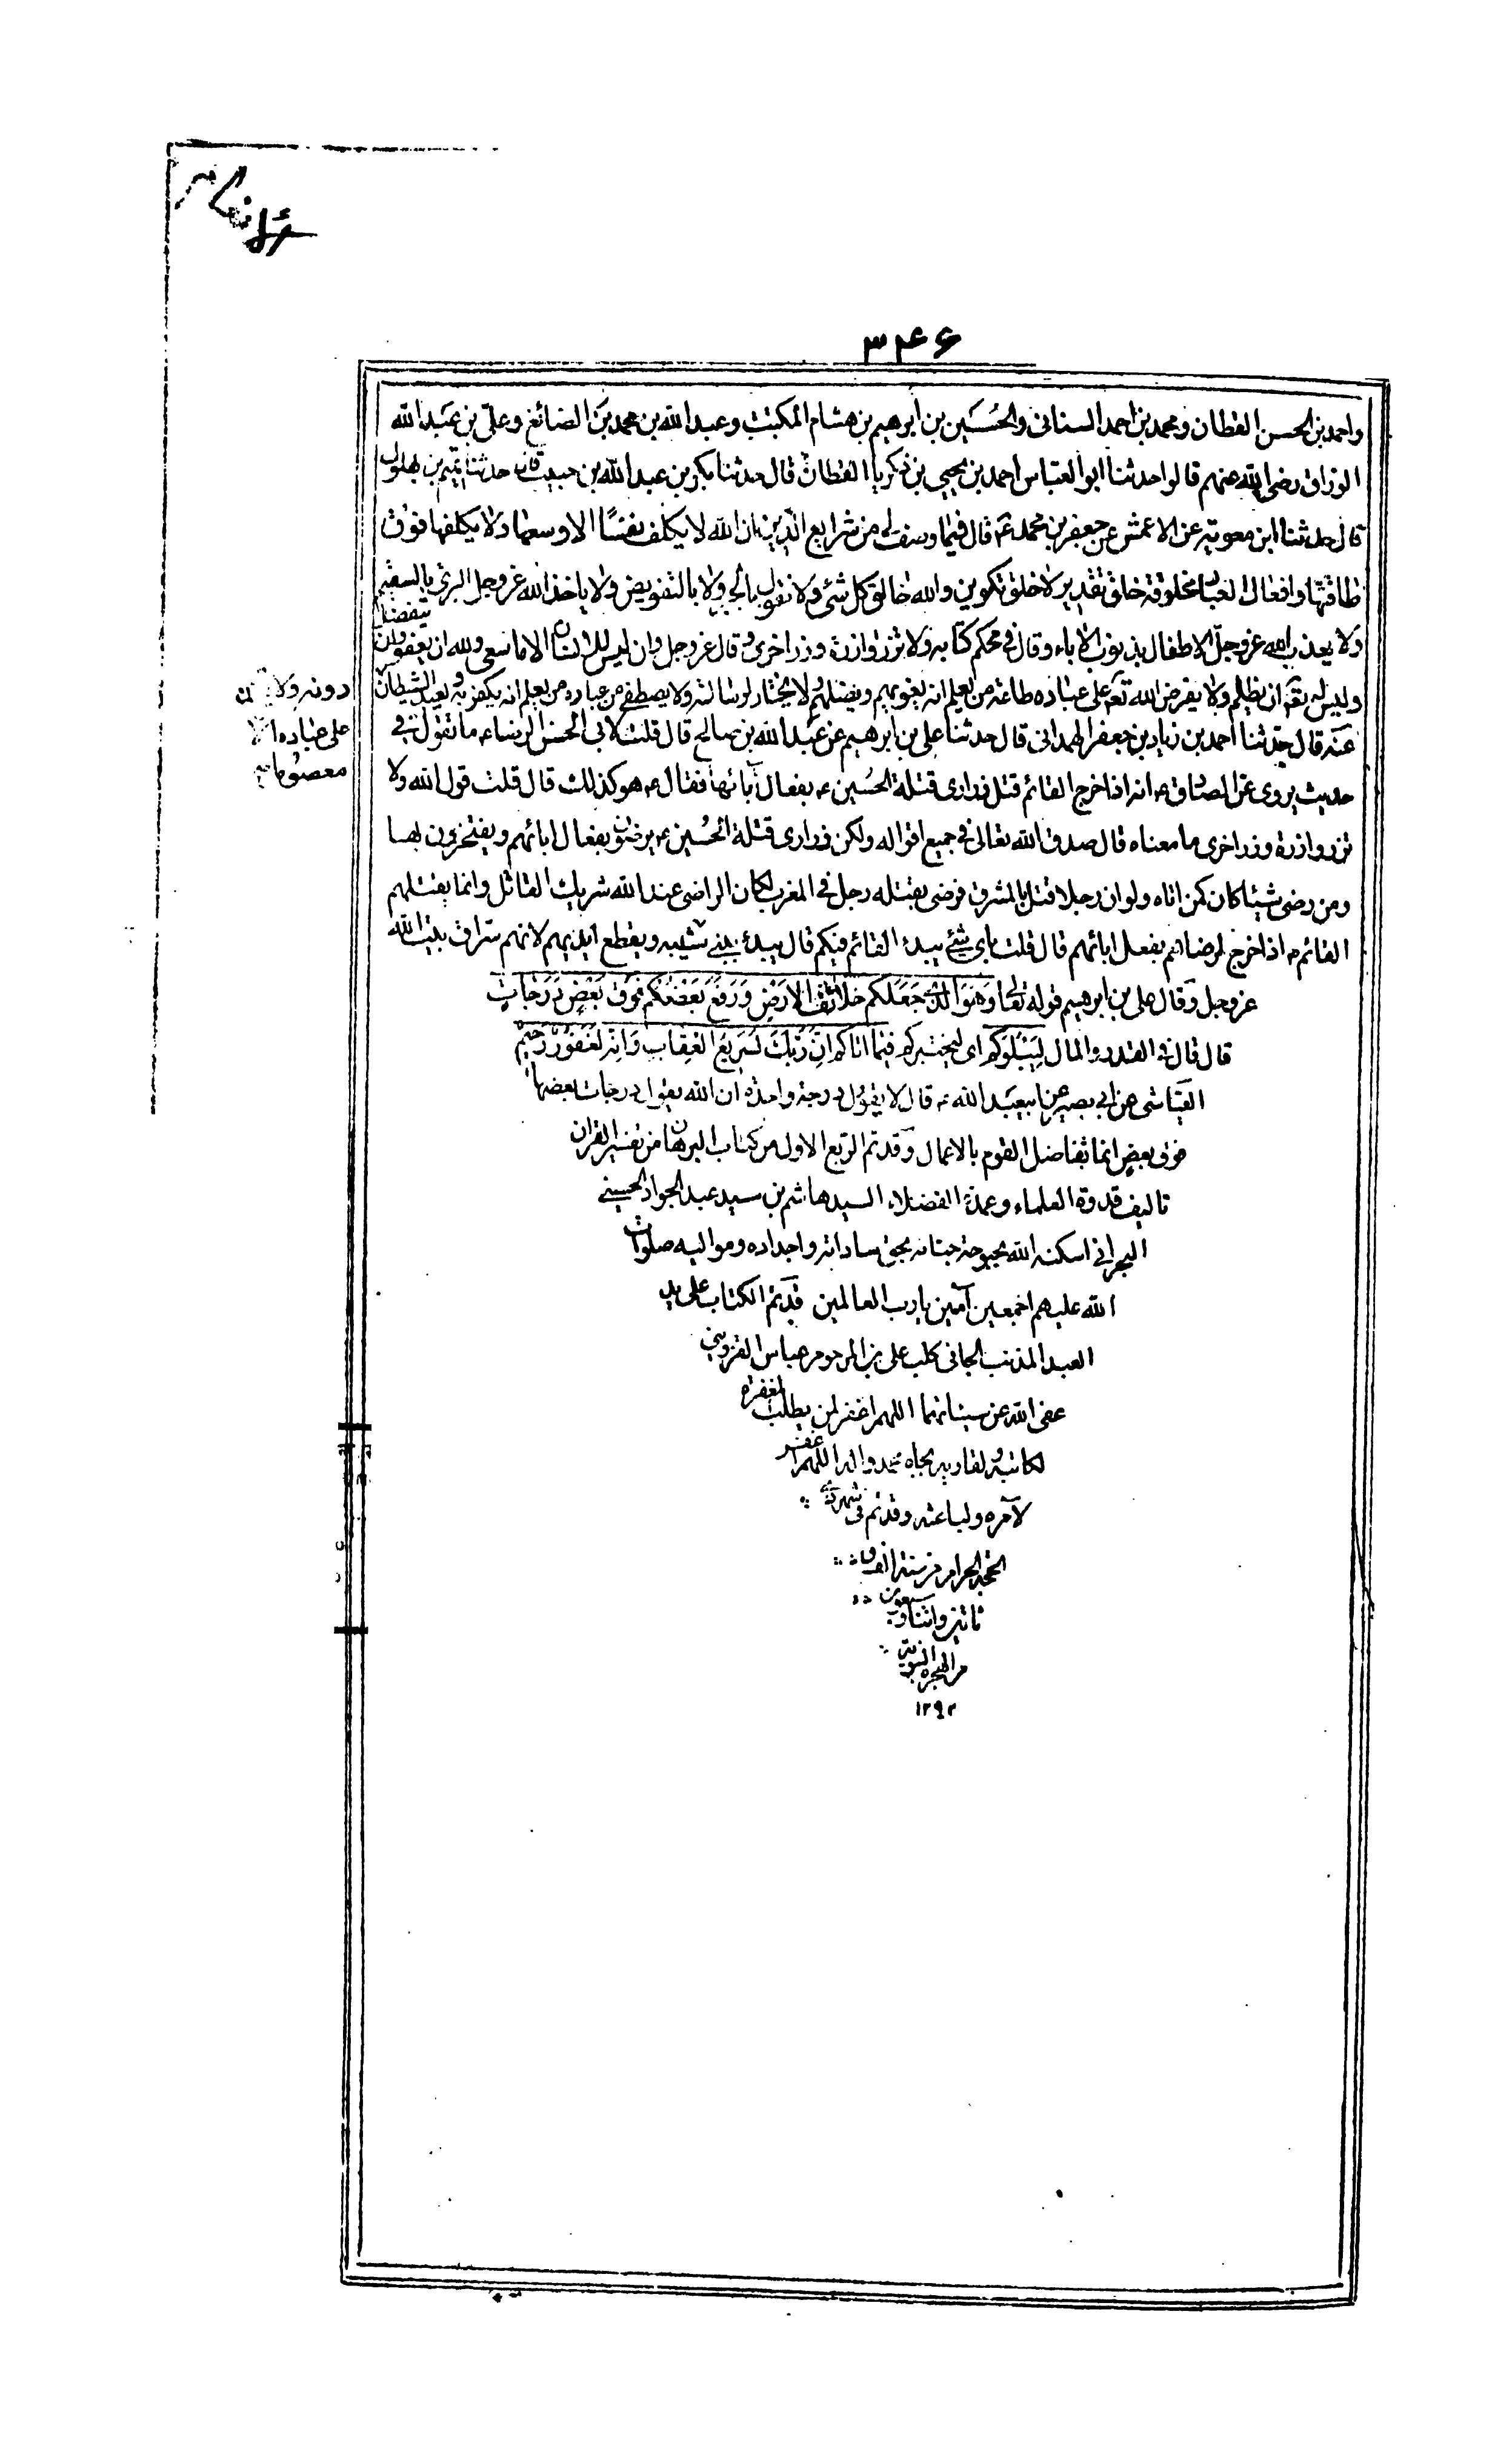 ٣٤۶
واحمد بن الحسن القطان ومحمد بن احمد السنانى والحسين بن ابرهيم بن هشام المكتب وعبد الله بن محمد بن الصائغ وعلى بن عبد الله
الوراق رضى الله عنهم قالوا حدثنا ابو العباس احمد بن يحيى بن زكريا القطان قال حدثنا بكر بن عبد الله بن حبيب قال حدثنا تميم بن بهلول
قال حدثنا ابن معوية عن الاعمش عن جعفر بن محمد ع قال فيما وصف لى من شرايع الدين ان الله لا يكلف نفسا الا وسعها ولا يكلفها فوق
طاقتها وافعال العباد مخلوقة خلق تقدير لا خلق تكوين والله خالق كل شئ ولا نقول بالجبر ولا بالتفويض ولا ياخذ الله عز وجل البرئ بالسقيم
ولا يعذب الله عز وجل الاطفال بذنوب الاباء وقال فى محكم كتابه ولا تزر وازرة وزر اخرى وقال عز وجل وان ليس للانسان الا ما سعى ولله ان يعفو وان يتفضل
وليس له تعم ان يظلم ولا يفرض الله تعم على عباده طاعة من يعلم انه يغويهم ويضلهم ولا يختار لرسالته ولا يصطفى من عباده من يعلم انه يكفر به ويعبد الشيطان
دونه ولا
على عباده الا
معصوما
عنه قال حدثنا احمد بن زياد بن جعفر الهمدانى قال حدثنا على بن ابرهيم عن عبد الله بن صالح قال قلت لابى الحسن الرضاء ع ما تقول فى
حديث يروى عن الصادق ع انه اذا خرج القائم قتل ذرارى قتلة الحسين ع بفعال آبائها فقال ع هو كذلك قال قلت قول الله ولا
تزر وازرة وزر اخرى ما معناه قال صدق الله تعالى فى جميع اقواله ولكن ذرارى قتلة الحسين ع يرضون بفعال ابائهم ويفتخرون بها
ومن رضى شيئا كان كمن اتاه ولو ان رجلا قتل بالمشرق فرضى بقتله رجل فى المغرب لكان الراضى عند الله شريك القاتل وانما يقتلهم
القائم ع اذا خرج لرضاهم بفعل ابائهم قال قلت باى شئ يبدء القائم فيكم قال يبدء ببنى شيبه ويقطع ايديهم لانهم سراق بيت الله
عز وجل وقال على بن ابرهيم قوله تعالى وهو الذى جعلكم خلائف الارض ورفع بعضكم فوق بعض درجات
قال قال فى القدر والمال ليبلوكم اى ليختبركم فيما اتاكم ان ربك لسريع العقاب وانه لغفور رحيم
العياشى عن ابى بصير عن ابيعبد الله ع قال لا يقول درجة واحدة ان الله يقول درجات بعضها
فوق بعض انما تفاضل القوم بالاعمال وقد تم الربع الاول من كتاب البرهان من تفسير القران
تاليف قدوة العلماء وعمدة الفضلاء السيد هاشم بن سيد عبد الجواد الحسينى
البحرانى اسكنه الله بحبوحة جنانه بحق ساداته واجداده ومواليه صلوات
الله عليهم اجمعين آمين يا رب العالمين قد تم الكتاب على يد
العبد المذنب الجانى كلب على بن المرحوم عباس القزوينى
عفى الله عن سيئاتهما اللهم اغفر لمن يطلب المغفرة
لكاتبه ولقاريه بجاه محمد واله اللهم اغفر
لآمره ولباعثه وقد تم فى شهر ذى
الحجة الحرام من سنة الف و
ماتين واثنا و تسعون
من الهجرة النبوية
١٢٩٢